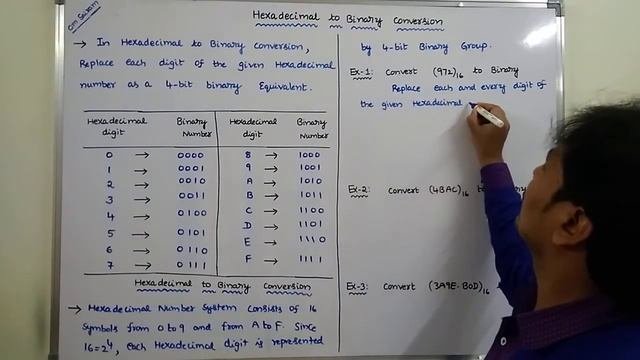 Om Sairam
Hexadecimal to Binary Conversion
→ In Hexadecimal to Binary Conversion,
Replace each digit of the given Hexadecimal
number as a 4-bit binary Equivalent.
Hexadecimal digit Binary Number Hexadecimal digit Binary Number
0 → 0000 8 → 1000
1 → 0001 9 → 1001
2 → 0010 A → 1010
3 → 0011 B → 1011
4 → 0100 C → 1100
5 → 0101 D → 1101
6 → 0110 E → 1110
7 → 0111 F → 1111
Hexadecimal to Binary Conversion
→ Hexadecimal Number System consists of 16
symbols from 0 to 9 and from A to F. Since
16=2⁴, each Hexadecimal digit is represented
by 4-bit Binary Group.
Ex-1: Convert (972)₁₆ to Binary
Replace each and every digit of
the given Hexadecimal
Ex-2: Convert (4BAC)₁₆
Ex-3: Convert (3A9E.B0D)₁₆